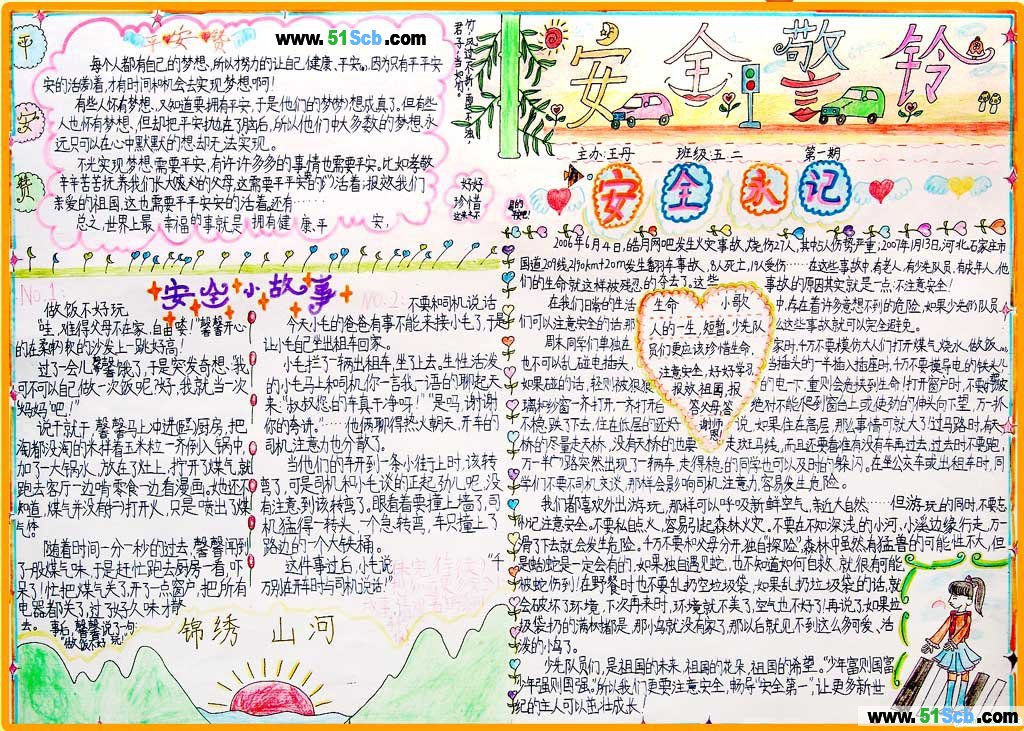 平
安
赞
平安赞
www.51Scb.com
每个人都有自己的梦想、所以拐力的让自己健康、平安。因为只有平平安
安的活着,才有时间和机会去实现梦想啊!
有些人怀有梦想、又知道要拥有平安,于是他们的梦想成真了。但有些
人也怀有梦想、但却把平安抛在了脑后,所以他们中大多数的梦想永
远只可以在心中默默的想却无法实现。
不光实现梦想需要平安,有许许多多的事情也需要平安,比如孝敬
辛辛苦苦抚养我们长大成人的父母,这需要平平安安的活着;报效我们
亲爱的祖国,这也需要平平安安的活着,还有……
总之,世界上最幸福的事就是拥有健康,平安,
君子当如竹。
好好
珍惜
安全警铃
主办:王丹 班级:五二 第一期
安全永记
2006年6月4日,皓月网吧发生火灾事故,烧伤27人,其中5人伤势严重;2007年1月3日,河北石家庄市
国道207线2190km+20m发生翻车事故,8人死亡,19人受伤……在这些事故中,有老人,有少先队员,有成年人,他
们的生命就这样被残忍的夺去了。这些事故的原因其实就是一点:不注意安全!
在我们日常的生活中,存在着许多意想不到的危险,如果少先队员
们可以注意安全的话,那么这些事故就可以完全避免。
周末同学们单独在家时,千万不要模仿大人们打开煤气、烧水、做饭。
也不可以乱碰电插头,当插头的一半插入插座时,千万不要摸导电的铁头!
如果碰的话,轻则被狠狠的电一下,重则会危及到生命!打开窗户时,不要把玻
璃和纱窗一齐打开,一齐打开后绝对不能爬到窗台上或使劲的伸头向下望,万一趴
不稳,跌了下去,住在低层的还好说,如果住在高层,那么事情可就大了!过马路时,有天
桥的尽量走天桥、没有天桥的也要走斑马线,而且还要看准有没有车再过去,过去时不要跑,
万一半路突然出现了一辆车,走得稳的同学也可以及时的躲闪。在坐公交车或出租车时,同
学们不要与司机交谈,那样会影响司机注意力,容易发生危险。
我们都喜欢外出游玩,那样可以呼吸新鲜空气,亲近大自然……但游玩的同时,不要忘
记注意安全。不要私自点火,容易引起森林火灾。不要在不知深浅的小河,小溪边缘行走,万一
滑了下去就会发生危险。千万不要和父母分开,独自“探险”,森林中虽然有猛兽的可能性不大,但
是蛤蛇是一定会有的,如果独自遇见蛇,也不知道如何自救,就很有可能
被蛇伤到!在野餐时也不要乱扔空垃圾袋,如果乱扔垃圾袋的话,就
会破坏了环境,下次再来时,环境就不美了,空气也不好了!再说了,如果垃
圾袋扔的满树都是,那小鸟就没有家了,那以后就见不到这么多可爱、活
泼的小鸟了。
少先队员们,是祖国的未来、祖国的花朵,祖国的希望。“少年富则国富
少年强则国强。”所以我们更要注意安全,畅导“安全第一”,让更多新世
纪的主人可以茁壮成长!
生命小歌
人的一生,短暂。少先队
员们更应该珍惜生命,
注意安全,好好学习,
报效祖国,报
答父母,答
谢师
恩!
安全小故事
No.1:
做饭不好玩
“哇,难得父母不在家,自由喽!”馨馨开心
的在柔软的沙发上一跳好高!
过了一会儿,馨馨饿了,于是突发奇想:“我
可不可以自己做一次饭呢?好,我就当一次
‘妈妈’吧!”
说干就干,馨馨马上冲进厨房,把
淘都没淘的米拌着玉米粒一齐倒入锅中,
加了一大锅水,放在了灶上,拧开了煤气,就
跑去客厅一边啃零食一边看漫画。她还不
知道,煤气并没有打开火,只是喷出了煤
气体。
随着时间一分一秒的过去,馨馨闻到
了股煤气味,于是赶忙跑去厨房一看,吓
呆了!忙把煤气关了,开了一点窗户,把所有
电器都关了,过了好久味才散
去。事后,馨馨说了一句:
“做饭不好玩”
No.2:
不要和司机说话
今天小毛的爸爸有事不能来接小毛了,于是
让小毛自己坐出租车回家。
小毛拦了一辆出租车,坐了上去。生性活泼
的小毛马上和司机你一言我一语的聊起天
来:“叔叔,您的车真干净呀!”“是吗,谢谢
你的夸讲。”……他俩聊得热火朝天,开车的
司机注意力也分散了。
当他们的车开到一条小街上时,该转
弯了,可是司机和小毛谈的正起劲儿呢,没
有注意到该转弯了。眼看着要撞上墙了,司
机猛得一转头,一个急转弯,车只撞上了
路边的一个大铁桶。
这件事过后,小毛说:“千
万别在开车时与司机说话!”
锦绣山河
www.51Scb.com